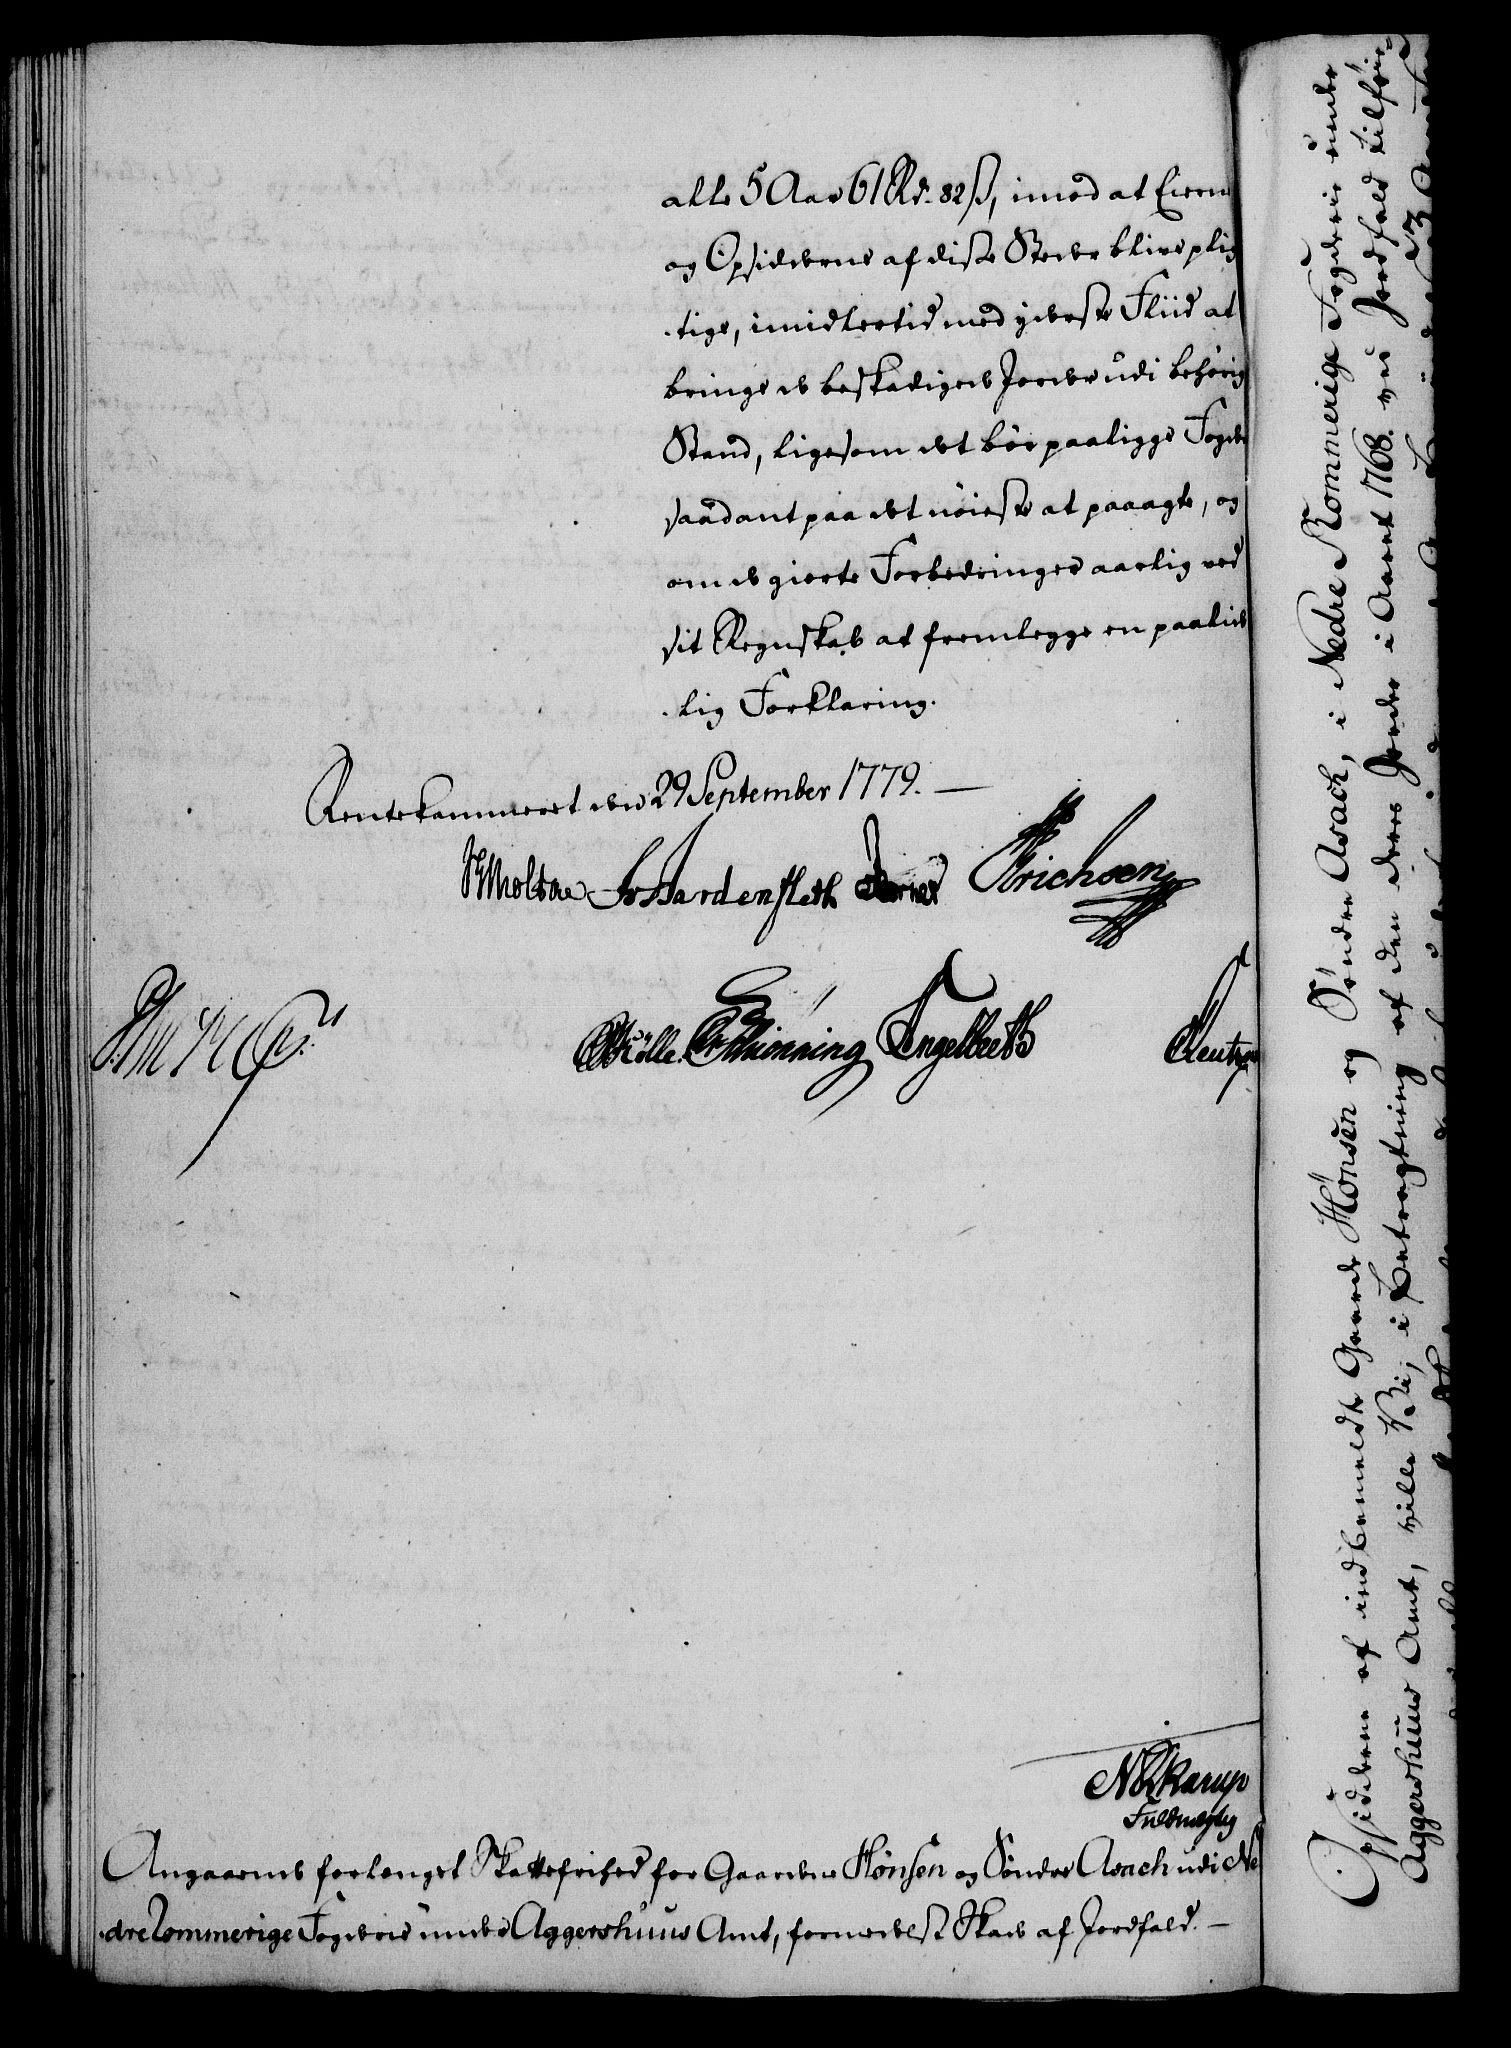 alle 5 Aar 61 Rd. 82 ß, imod at Eierne
og Opsidderne af disse Steder blive plig
-tige, imidlertid med yderste Fliid at
bringe de beskadigede Jorder udi behørig
Stand, ligesom det bør paaligge Fogden
saadant paa det nøieste at paaagte, og
om de giorte Forbedringer aarlig ved
sit Regnskab at fremlegge en paalide
-lig Forklaring.
Rentekammeret den 29 September 1779. —
Moltke Hardenfleth Erichsen
Mølle. Winning Engelbreth
N Skarup
Fuldmægtig
Angaaende forlenget Skattefrihed for Gaardene Hønsen og Søndre Asach udi Ne
-dre Rommerige Fogderie under Aggershuus Amt, formedelst Skade af Jordfald. —
Opsidderne af indbemeldte Gaarde Hønsen og Søndre Asach, i Nedre Rommerige Fogderie under
Aggershuus Amt, ville Vi, i Betragtning af den deres Jorder i Aaret 1768. ved Jordfald tilføie